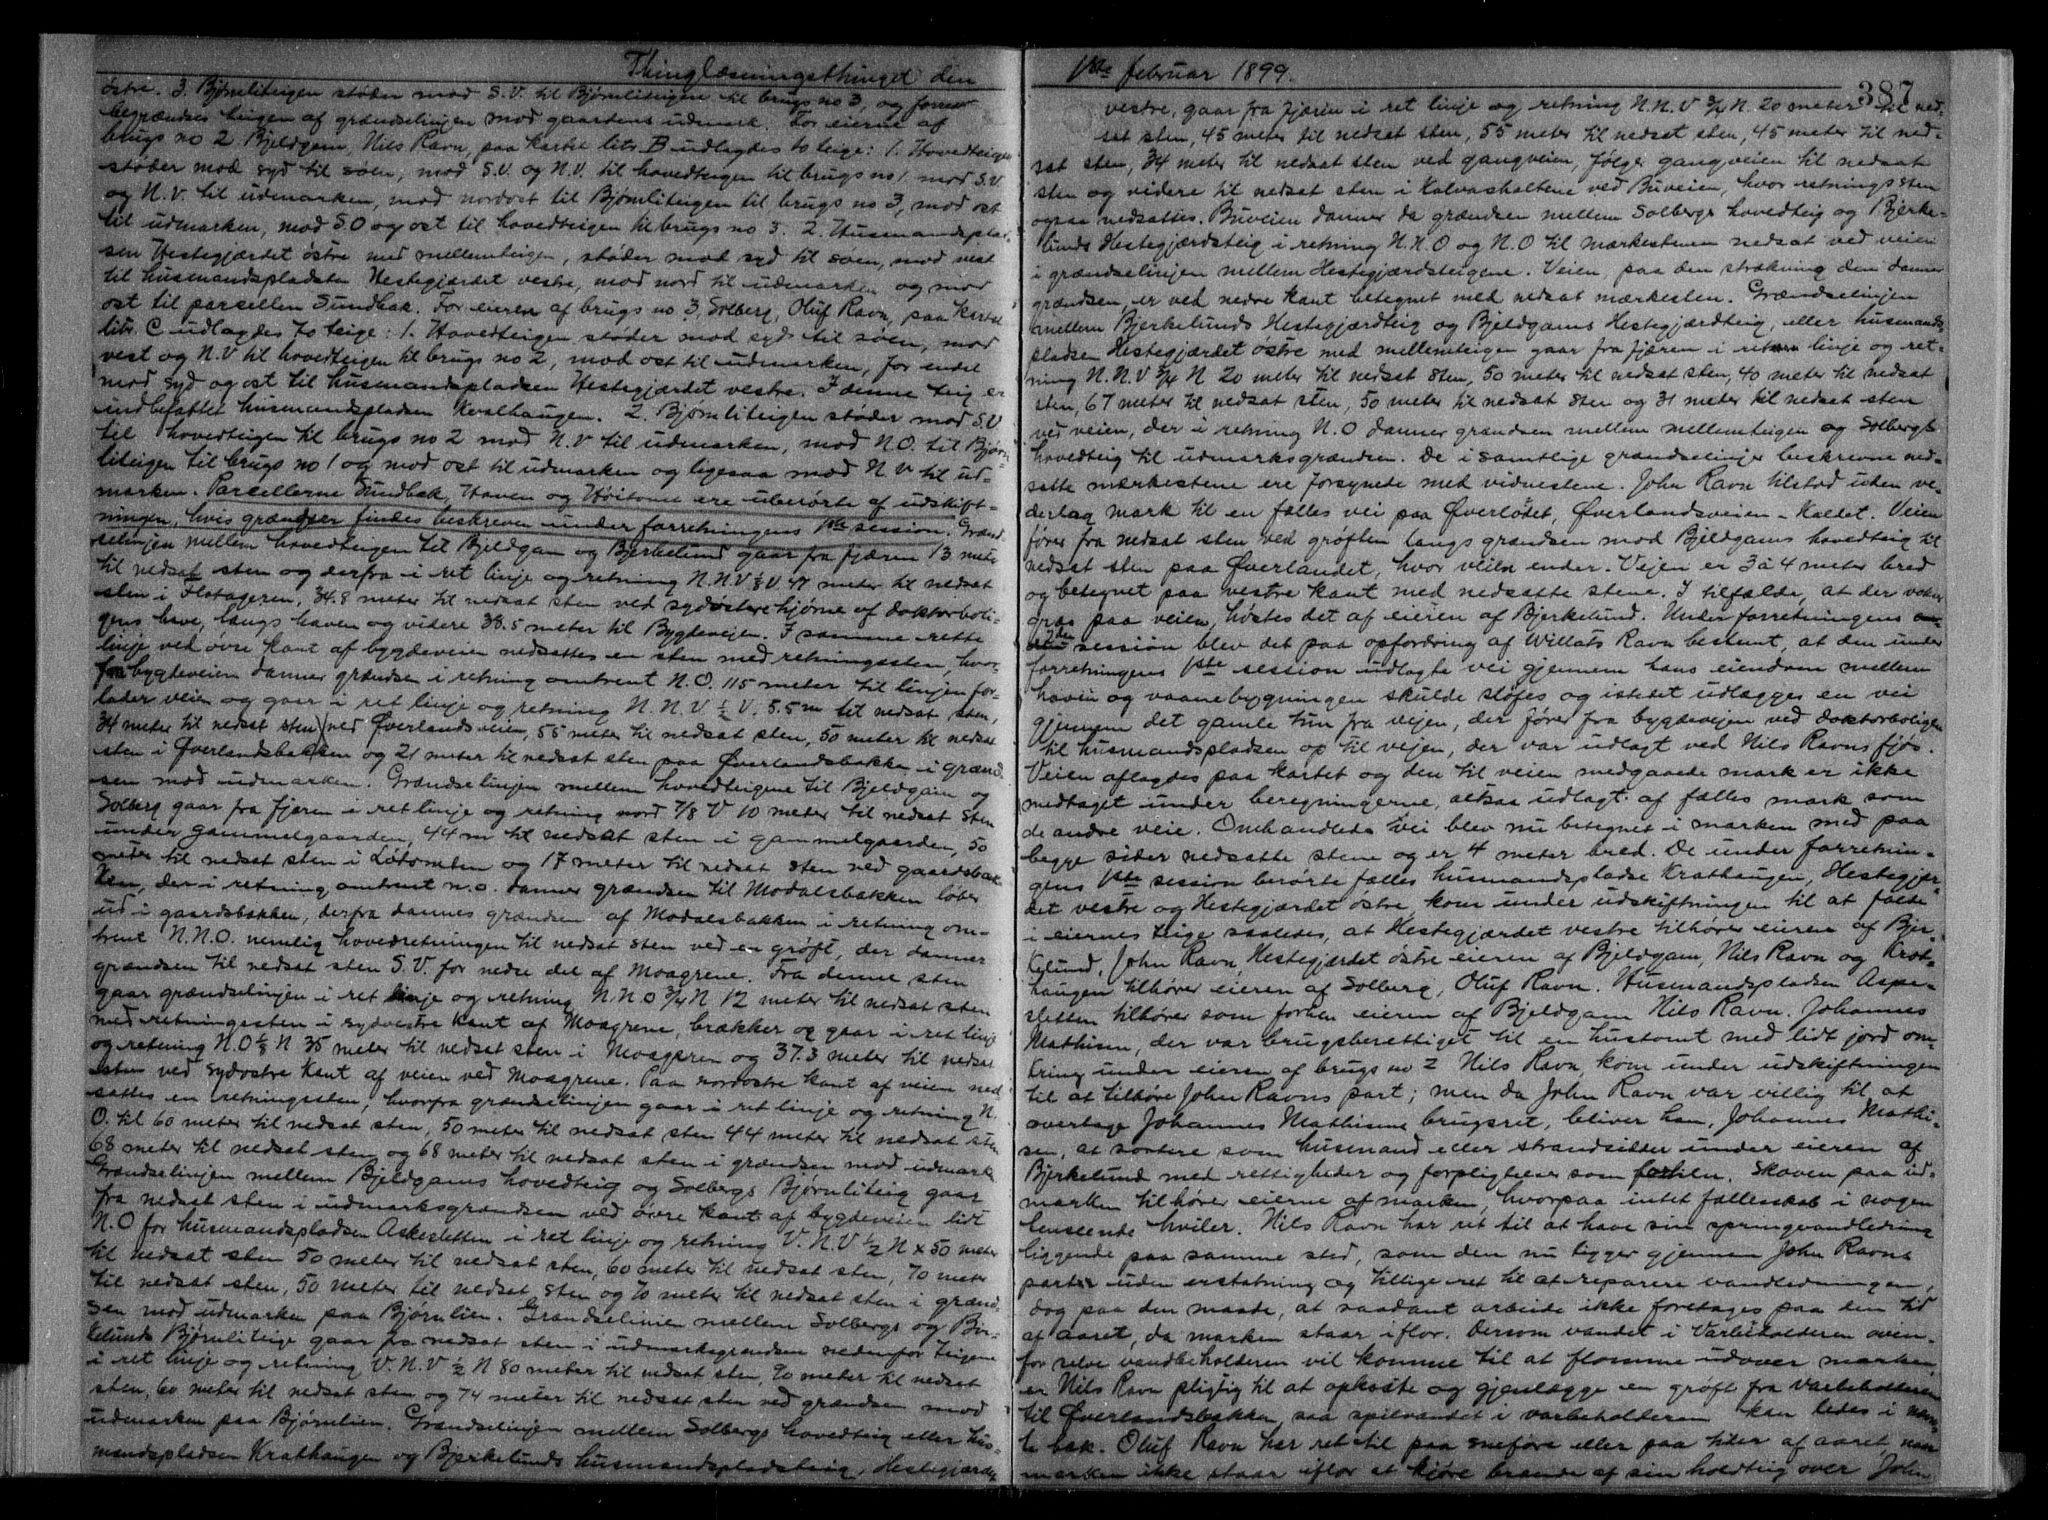 Thinglæsningsthinget den
østre. 3. Bjørnliteigen støder mod S.V. til Bjørnliteigen til brugs no 3, og forøvr
begrændses teigen af grændselinjen mod gaardens udmark. For eierne af
brugs no 2 Bjeldgam, Nils Ravn, paa kartet litr. B udlagdes to teige: 1. Hovedteigen
støder mod syd til søen, mod S.V. og N.V. til hovedteigen til brugs no 1 mod S.V
og N.V. til udmarken, mod nordost til Bjørnliteigen til brugs no 3, mod ost
til udmarken, mod S.O og ost til hovedteigen til brugs no 3. 2. Husmandsplad-
sen Hestegjærdet østre med mellemteigen, støder mod syd til søen, mod vest
til husmandspladsen Hestegjærdet vestre, mod nord til udmarken og mod
ost til parsellen Sundbak. For eieren af brugs no 3, Solberg, Oluf Ravn, paa kartet
litr. C udlagdes to teige: 1. Hovedteigen støder mod syd til søen, mod
vest og N.V til hovedteigen til brugs no 2, mod ost til udmarken, for endel
mod syd og ost til husmandspladsen Hestegjærdet vestre. I denne teig er
indbefattet husmandspladsen Kralhaugen. 2. Bjørnliteigen støder mod S.V
til hovedteigen til brugs no 2 mod N.V til udmarken, mod N.O. til Bjørn-
liteigen til brugs no 1 og mod ost til udmarken og ligesaa mod N.V til ud-
marken. Parcellerne Sundbak, Haven og Høitomt ere uberørte af udskift-
ningen, hvis grændser findes beskreven under forretningens 1ste session. Grænd-
selinjen mellem hovedteigen til Bjeldgam og Bjerkelund gaar fra fjæren 13 meter
til nedsat sten og derfra i ret linje og retning N.N.V ½ V. 47 meter til nedsat
sten i Flatageren, 34.8 meter til nedsat sten ved sydøstere hjørne af doktorboli-
gens have, langs haven og videre 38.5 meter til Bygdeveien. I samme rette
linje ved øvre kant af bygdeveien nedsattes en sten med retningssten, hvor-
fra bygdeveien danner grændsen i retning omtrent N.O. 115 meter til linjen for-
lader veien og gaar i ret linje og retning N.N.V ½ V. 5.5 m til nedsat sten,
34 meter til nedsat sten ved Øverlandsveien, 55 meter til nedsat sten, 50 meter til nedsat
sten i Øverlandsbakken og 21 meter til nedsat sten paa Øverlandsbakken i grænd-
sen mod udmarken. Grændselinjen mellem hovedteigene til Bjeldgam og
Solberg gaar fra fjæren i ret linje og retning nord 7/8 V 10 meter til nedsat sten
under gammelgaarden, 44 m til nedsat sten i gammelgaarden, 50
meter til nedsat sten i Løtomten og 17 meter til nedsat sten ved gaardsbak-
ken, der i retning omtrent n.o. danner grændsen til Modalsbakken løber
ud i gaardsbakken, derfra dannes grændsen af Modalsbakken i retning om-
trent N.N.O. nemlig hovedretningen til nedsat sten ved en grøft, der danner
grændsen til nedsat sten S.V. for nedre del af Moagrene. Fra denne sten
gaar grændselinjen i ret linje og retning N.N.O ¾ N 12 meter til nedsat sten
med retningssten i sydvestre kant af Moagrene, brækker og gaar i ret linje
og retning N.O ½ N 35 meter til nedsat sten i Moageren og 37.3 meter til nedsat
sten ved sydvestre kant af veien ved Moagrene. Paa nordostre kant af veien ned-
sattes en retningssten, hvorfra grændselinjen gaar i ret linje og retning N.
O. til 60 meter til nedsat sten, 50 meter til nedsat sten 44 meter til nedsat sten
68 meter til nedsat sten og 68 meter til nedsat sten i grændsen mod udmark
Grændselinjen mellem Bjeldgams hovedteig og Solbergs Bjørnliteig gaar
fra nedsat sten i udmarksgrændsen ved øvre kant af bygdeveien lidt
N.O for husmandspladsen Askesletten i ret linje og retning V.N.V ½ N x 50 meter
til nedsat sten 50 meter til nedsat sten, 60 meter til nedsat sten, 70 meter
til nedsat sten, 50 meter til nedsat sten og 70 meter til nedsat sten i grænd-
sen mod udmarken paa Bjørnlien. Grændselinien mellem Solbergs og Bjer-
kelunds Bjørnliteige gaar fra nedsat sten i udmarksgrændsen nedenfor teigene
i ret linje og retning V.N.V ½ N 80 meter til nedsat sten, 70 meter til nedsat
sten, 60 meter til nedsat sten og 74 meter til nedsat sten ved grændsen mod
udmarken paa Bjørnlien. Grændselinjen mellem Solbergs hovedteig eller hus-
mandspladsen Krathaugen og Bjerkelunds husmandspladsteig, Hestegjærdet
1ste februar 1899.
387
vestre, gaar fra fjæren i ret linje og retning N.N.V ¾ N. 20 meter til ned-
sat sten, 45 meter til nedsat sten, 55 meter til nedsat sten, 45 meter til ned-
sat sten, 34 meter til nedsat sten ved gangveien, følger gangveien til nedsat
sten og videre til nedsat sten i Kalvashaltene ved Buveien, hvor retningssten
ogsaa nedsattes. Buveien danner da grændsen mellem Solbergs hovedteig og Bjerke-
lunds Hestegjærdsteig i retning N.N.O og N.O til mærkestenen nedsat ved veien
i grændselinjen mellem Hestegjærdsteigene. Veien, paa den strækning den danner
grændsen, er ved nedre kant betegnet med nedsat mærkesten. Grændselinjen
mellem Bjerkelunds Hestegjærdteig og Bjeldgams Hestegjærdteig, eller husmands-
pladsen Hestegjærdet østre med mellemteigen gaar fra fjæren i ret linje og ret-
ning N.N.V ¾ N 20 meter til nedsat sten, 50 meter til nedsat sten, 40 meter til nedsat
sten, 67 meter til nedsat sten, 50 meter til nedsat sten og 31 meter til nedsat sten
ved veien, der i retning N.O danner grændsen mellem mellemteigen og Solbergs
hovedteig til udmarksgrændsen. De i samtlige grændselinjer beskrevne ned-
satte mærkestene ere forsynede med vidnestene. John Ravn tilstod uden ve-
derlag mark til en fælles vei paa Øverlødet, Øverlandsveien - Kaldet. Veien
fører fra nedsat sten ved grøften langs grændsen mod Bjeldgams hovedteig til
nedsat sten paa Øverlandet, hvor veien ender. Vejen er 3 à 4 meter bred
og betegnet paa vestre kant med nedsatte stene. I tilfælde, at der vokser
græs paa veien, høstes det af eieren af Bjerkelund. Under forretningens
2den session blev det paa opfordring af Willats Ravn bestemt, at den under
forretningens 1ste session udlagte vei gjennem hans eiendom mellem
haven og vaanebygningen skulde sløfes og istedet udlægges en vei
gjennem det gamle tun fra vejen, der fører fra bygdevejen ved doktorboligen
til husmandspladsen op til vejen, der var udlagt ved Nils Ravns fjøs.
Veien aflagdes paa kartet og den til veien medgaaede mark er ikke
medtaget under beregningerne, altsaa udlagt af fælles mark som
de andre veie. Omhandlede vei blev nu betegnet i marken med paa
begge sider nedsatte stene og er 4 meter bred. De under forretnin-
gens 1ste session berørte fælles husmandspladse Krathaugen, Hestegjær-
det vestre og Hestegjærdet østre, kom under udskiftningen til at falde
i eiernes teige saaledes, at Hestegjærdet vestre tilhører eieren af Bjer-
kelund, John Ravn, Hestegjærdet østre eieren af Bjeldgam, Nils Ravn og Krat-
haugen tilhører eieren af Solberg, Oluf Ravn. Husmandspladsen Aspe-
sletten tilhører som forhen eieren af Bjeldgam Nils Ravn. Johannes
Mathisen, der var brugsberettiget til en hustomt med lidt jord om-
kring under eieren af brugs no 2 Nils Ravn, kom under udskiftningen
til at tilhøre John Ravns part; men da John Ravn var villig til at
overtage Johannes Mathisens brugsret, bliver han, Johannes Mathi-
sen, at sortere som husmand eller strandsidder under eieren af
Bjerkelund med rettigheder og forpligtelser som forhen. Skoven paa ud-
marken tilhører eierne af marken, hvorpaa intet fællesskab i nogen
henseende hviler. Nils Ravn har ret til at have sin springvandledning
liggende paa samme sted, som den nu ligger gjennem John Ravns
part uden erstatning og tillige ret til at reparere vandledningen,
dog paa den maade, at saadant arbeide ikke foretages paa den tid
af aaret, da marken staar iflor. Dersom vandet i Varbeholderen oven-
for selve vandbeholderen vil komme til at flomme udover marken,
er Nils Ravn pligtig til at opkaste og gjenlægge en grøft fra varbeholderen
til Øverlandsbakken, saa spilvandet i varbeholderen kan ledes i
bæk. Oluf Ravn har ret til paa sneføre eller paa tider af aaret, naar
marken ikke staar iflor at kjøre brænde af sin holdteig over John